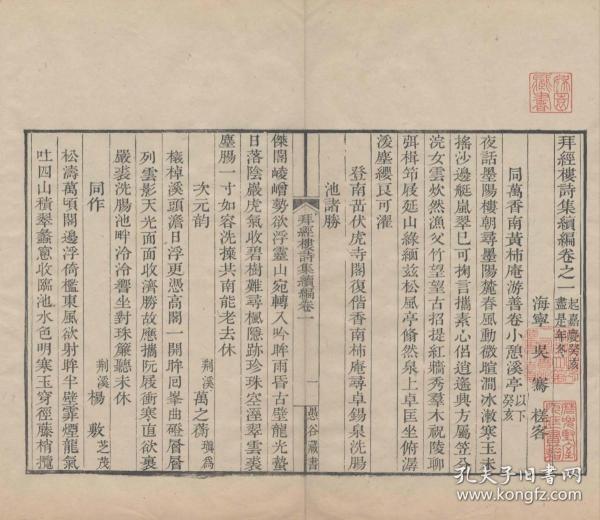 拜經樓詩集續編卷之一 起嘉慶癸亥盡是年冬
海寧 吳 騫 槎客
同萬香南黃柿庵游善卷小憩溪亭 以下癸亥
夜話墨陽樓朝尋墨陽麓春風動微暄澗冰漱寒玉未
搖沙邊艇嵐翠已可掬言攜素心侶逍遙興方屬笠
浣女雲炊然漁父竹望望古招提紅牆秀羣木祝陵聊
弭楫笻屐延山綠緬茲松風亭翛然泉上卓匡坐俯潺
湲塵纓良可濯
登南岳伏虎寺閣復偕香南柿庵尋卓錫泉洗腸
池諸勝
傑閣崚嶒勢欲浮靈山宛轉入吟眸雨昏古壁龍光蟄
日落陰巖虎氣收碧樹難尋楓隱跡珍珠空溼翠雲裘
塵腸一寸如容洗擬共南能老去休
次元韵 荆溪 萬之蘅 瑱為
檥棹溪頭澹日浮更憑高閣一開眸回峯曲磴層層
列雲影天光面面收濟勝故應攜阮屐衝寒直欲裹
嚴裘洗腸池畔泠泠響坐對珠簾聽未休
同作 荆溪 楊 敷 芝茂
松濤萬頃閣邊浮倚檻東風欲射眸半壁霏煙龍氣
吐四山積翠蠡窻收臨池水色明寒玉穿徑藤梢攬
拜經樓詩集續編卷一
一
愚谷叢書
孔夫子旧书网
www.kongfz.com